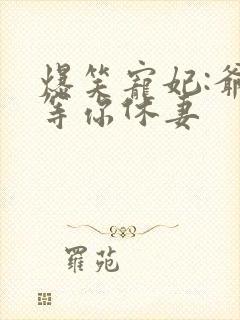 爆笑寵妃:爺
等你休妻
羅苑